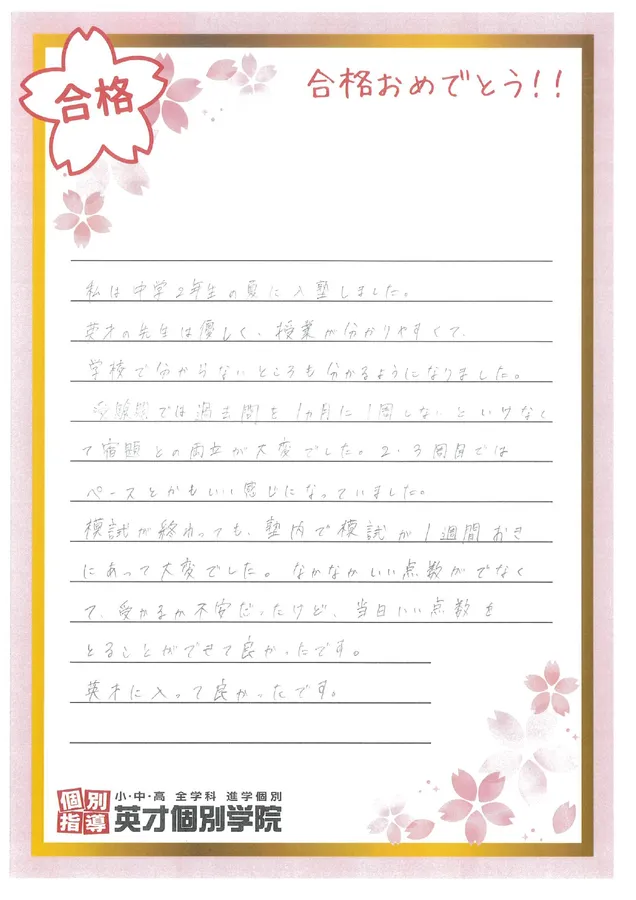 合格
合格おめでとう!!
私は中学2年生の夏に入塾しました。
英才の先生は優しく、授業が分かりやすくて、
学校で分からないところも分かるようになりました。
受験期では過去問を1カ月に1周しないといけなく
て宿題との両立が大変でした。2・3周目では
ペースとかもいい感じになっていました。
模試が終わっても、塾内で模試が1週間おき
にあって大変でした。なかなかいい点数がでなく
て、受かるか不安だったけど、当日いい点数を
とることができて良かったです。
英才に入って良かったです。
個別指導
小・中・高 全学科 進学個別
英才個別学院